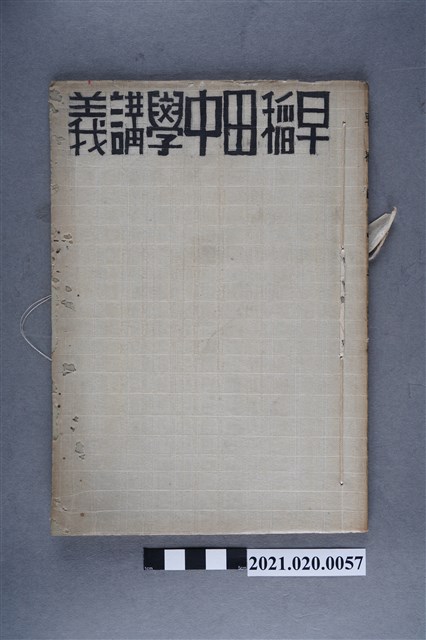 早稲田中學講義
2021.020.0057